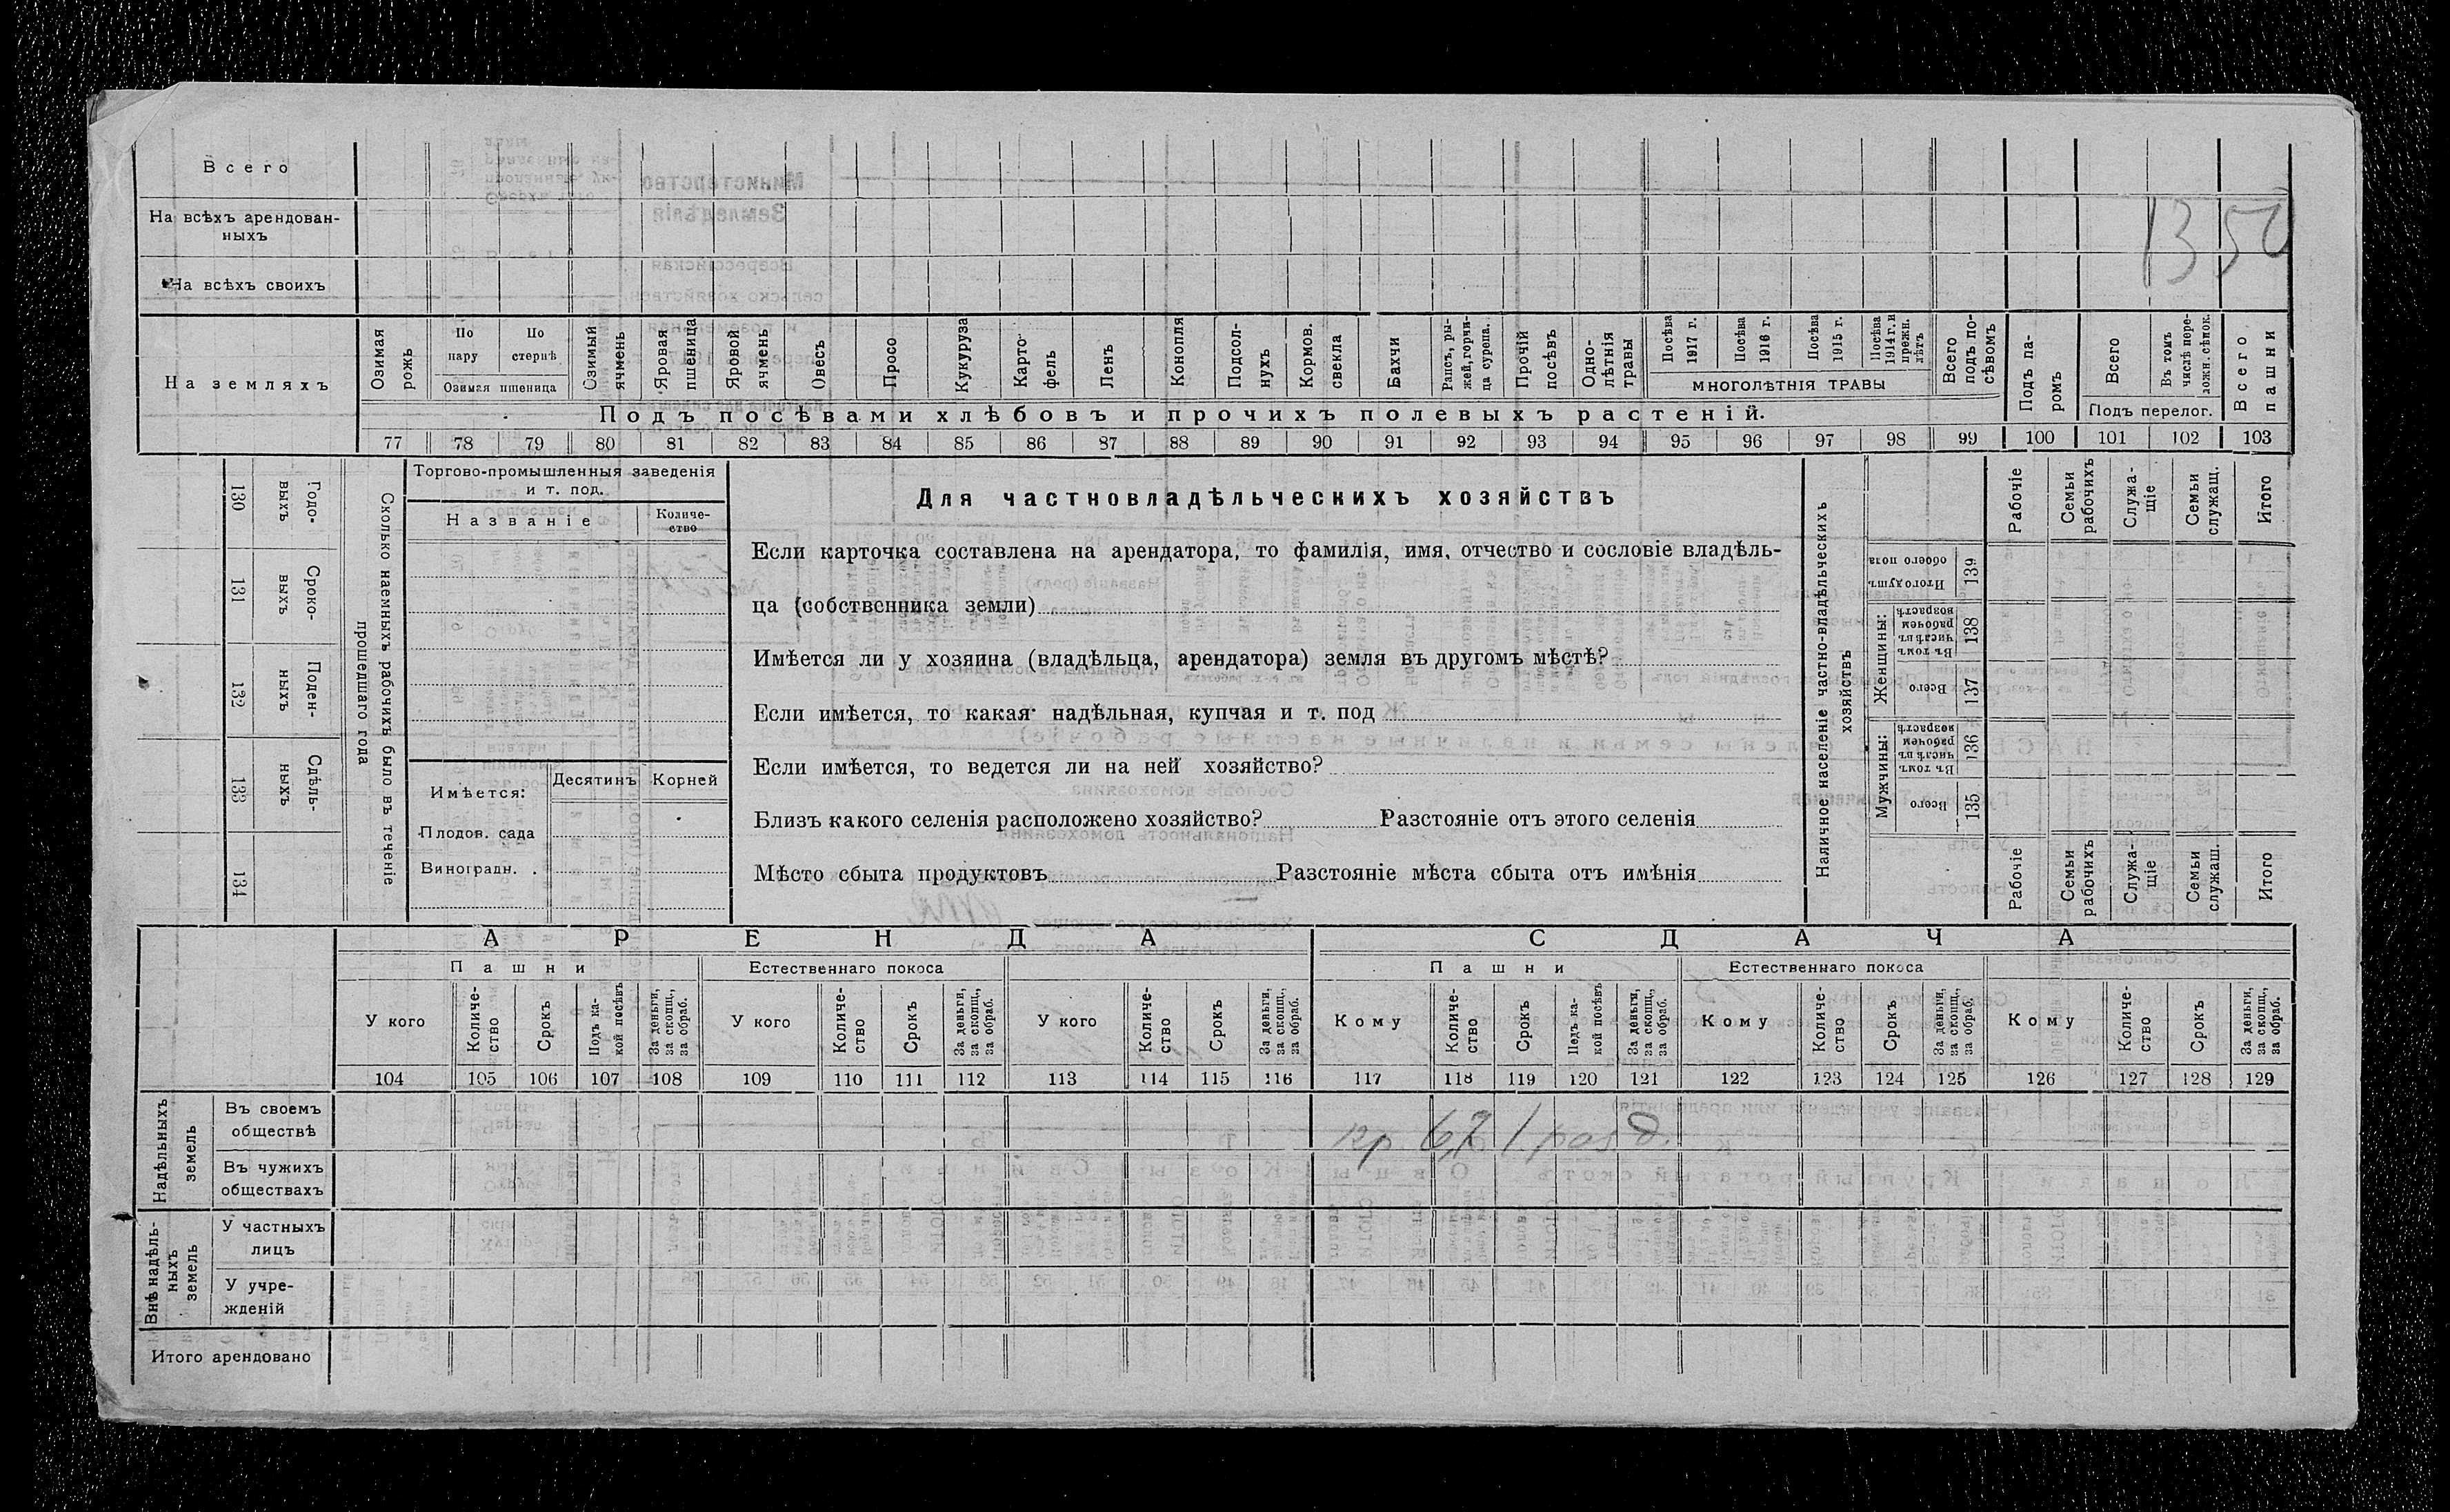 Всего
На всѣхъ арендован-
ныхъ
1350
На всѣхъ своихъ
На земляхъ
Озимая рожь
По пару
По стернѣ
Озимая пшеница
Озимый ячмень
Яровая пшеница
Яровой ячмень
Овесъ
Просо
Кукуруза
Карто-
фель
Ленъ
Конопля
Подсол-
нухъ
Кормов. свекла
Бахчи
Рапсъ, ры-
жей, горчи-
ца сурепа.
Прочій посѣвъ
Одно-
лѣтнія травы
Посѣва 1917 г.
Посѣва 1916 г.
Посѣва 1915 г.
Посѣва 1914 г. и прежн. лѣтъ
МНОГОЛѢТНІЯ ТРАВЫ
Всего подъ по-
сѣвомъ
Подъ па-
ромъ
Всего
Въ томъ числѣ пере-
ложн. сѣнок.
Подъ перелог.
Всего пашни
Подъ посѣвами хлѣбовъ и прочихъ полевыхъ растеній.
77 78 79 80 81 82 83 84 85 86 87 88 89 90 91 92 93 94 95 96 97 98 99 100 101 102 103
130 Годо-
выхъ
131 Сроко-
выхъ
132 Поден-
ныхъ
133 Сдѣль-
ныхъ
134
Сколько наемныхъ рабочихъ было въ теченіе
прошедшаго года
Торгово-промышленныя заведенія
и т. под.
Названіе
Количе-
ство
Имѣется:
Десятинъ
Корней
Плодов. сада
Виноградн. .
Для частновладѣльческихъ хозяйствъ
Если карточка составлена на арендатора, то фамилія, имя, отчество и сословіе владѣль-
ца (собственника земли)
Имѣется ли у хозяина (владѣльца, арендатора) земля въ другомъ мѣстѣ?
Если имѣется, то какая надѣльная, купчая и т. под
Если имѣется, то ведется ли на ней хозяйство?
Близъ какого селенія расположено хозяйство? Разстояніе отъ этого селенія
Мѣсто сбыта продуктовъ Разстояніе мѣста сбыта отъ имѣнія
Наличное населеніе частно-владѣльческихъ
хозяйствъ
Рабочіе
Семьи рабочихъ
Служа-
щіе
Семьи служащ.
Итого
Итого душъ обоего пола 139
Женщины:
Въ томъ числѣ въ рабочем возрастѣ 138
Всего 137
Мужчины:
Въ томъ числѣ въ рабочем возрастѣ 136
Всего 135
Рабочіе
Семьи рабочихъ
Служа-
щіе
Семьи служащ.
Итого
АРЕНДА
СДАЧА
Пашни
Естественнаго покоса
Пашни
Естественнаго покоса
У кого
Количе-
ство
Срокъ
Подъ ка-
кой посѣвъ
За деньги, за скопщ., за обраб.
У кого
Количе-
ство
Срокъ
За деньги, за скопщ., за обраб.
У кого
Количе-
ство
Срокъ
За деньги, за скопщ., за обраб.
Кому
Количе-
ство
Срокъ
Подъ ка-
кой посѣвъ
За деньги, за скопщ., за обраб.
Кому
Количе-
ство
Срокъ
За деньги, за скопщ., за обраб.
Кому
Количе-
ство
Срокъ
За деньги, за скопщ., за обраб.
104 105 106 107 108 109 110 111 112 113 114 115 116 117 118 119 120 121 122 123 124 125 126 127 128 129
Надѣльныхъ земель
Въ своемъ
обществѣ
кр.
Въ чужихъ
обществахъ
Внѣ надѣль-
ныхъ земель
У частныхъ
лицъ
У учре-
жденій
Итого арендовано